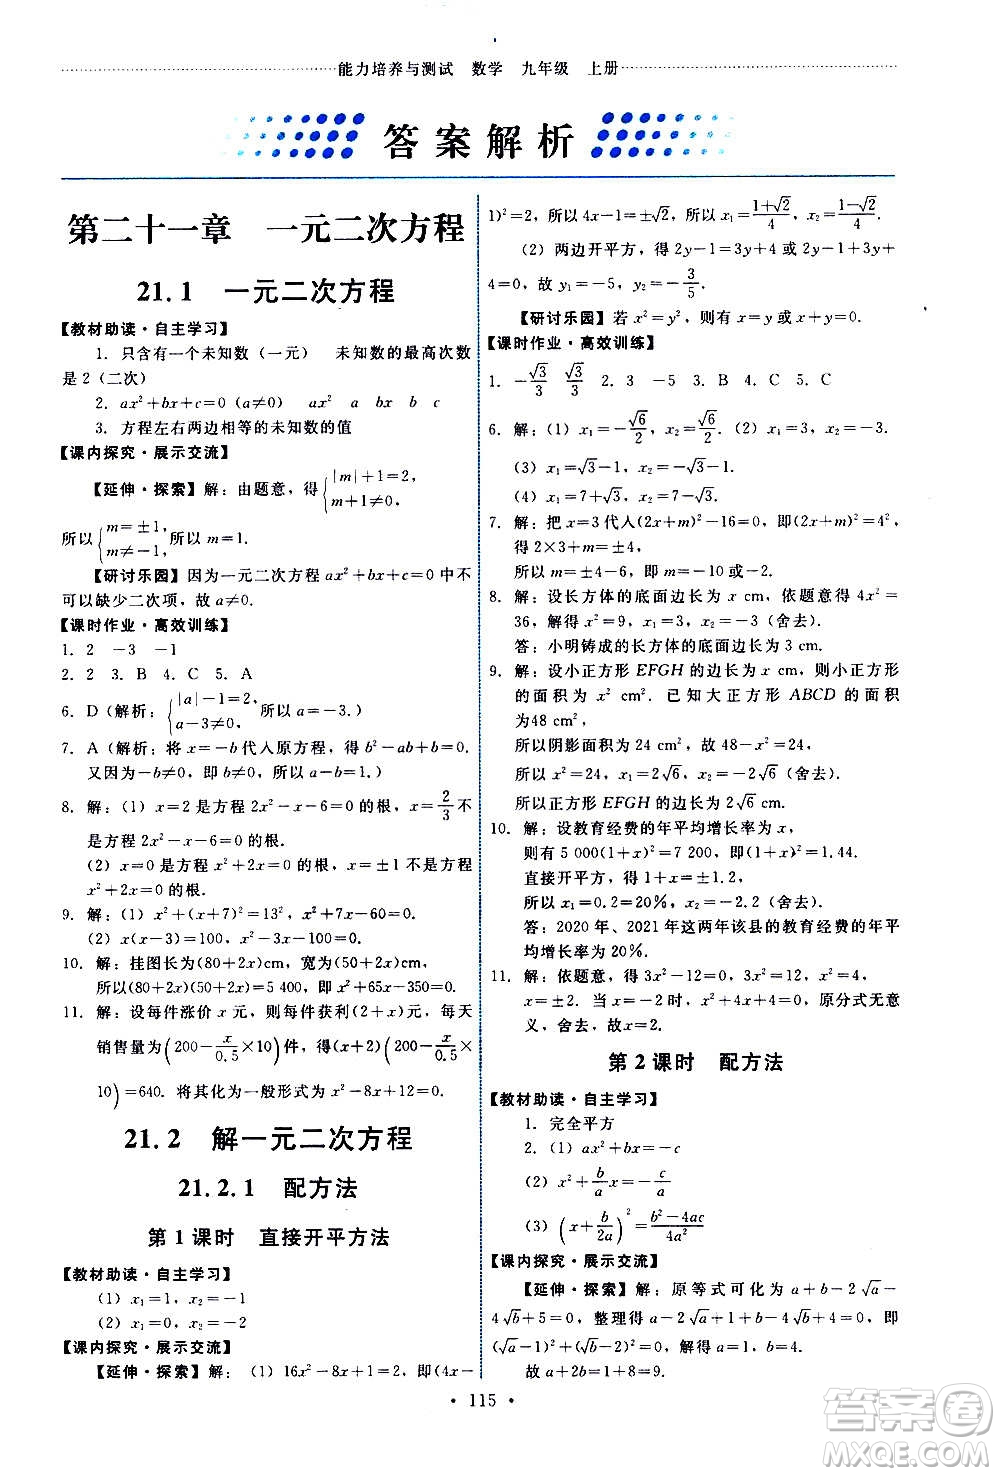 能力培养与测试 数学 九年级 上册
答案解析
第二十一章 一元二次方程
21.1 一元二次方程
【教材助读·自主学习】
1. 只含有一个未知数(一元) 未知数的最高次数
是2(二次)
2. ax²+bx+c=0(a≠0) ax² a bx b c
3. 方程左右两边相等的未知数的值
【课内探究·展示交流】
【延伸·探索】解:由题意,得{|m|+1=2, m+1≠0,
所以{m=±1, m≠-1. 所以m=1.
【研讨乐园】因为一元二次方程ax²+bx+c=0中不
可以缺少二次项,故a≠0.
【课时作业·高效训练】
1. 2 -3 -1
2. 2 3. B 4. C 5. A
6. D(解析:{|a|-1=2, a-3≠0. 所以a=-3.)
7. A(解析:将x=-b代入原方程,得b²-ab+b=0.
又因为-b≠0,即b≠0,所以a-b=1.)
8. 解:(1)x=2是方程2x²-x-6=0的根,x=2/3不
是方程2x²-x-6=0的根.
(2)x=0是方程x²+2x=0的根,x=±1不是方程
x²+2x=0的根.
9. 解:(1)x²+(x+7)²=13²,x²+7x-60=0.
(2)x(x-3)=100,x²-3x-100=0.
10. 解:挂图长为(80+2x)cm,宽为(50+2x)cm,
所以(80+2x)(50+2x)=5 400,即x²+65x-350=0.
11. 解:设每件涨价x元,则每件获利(2+x)元,每天
销售量为(200-x/0.5×10)件,得(x+2)(200-x/0.5×
10)=640. 将其化为一般形式为x²-8x+12=0.
21.2 解一元二次方程
21.2.1 配方法
第1课时 直接开平方法
【教材助读·自主学习】
(1)x₁=1,x₂=-1
(2)x₁=0,x₂=-2
【课内探究·展示交流】
【延伸·探索】解:(1)16x²-8x+1=2,即(4x-
1)²=2,所以4x-1=±√2,所以x₁=(1+√2)/4,x₂=(1-√2)/4.
(2)两边开平方,得2y-1=3y+4或2y-1+3y+
4=0,故y₁=-5,y₂=-3/5.
【研讨乐园】若x²=y²,则有x=y或x+y=0.
【课时作业·高效训练】
1. -√3/3 √3/3 2. 3 -5 3. B 4. C 5. C
6. 解:(1)x₁=-√6/2,x₂=√6/2. (2)x₁=3,x₂=-3.
(3)x₁=√3-1,x₂=-√3-1.
(4)x₁=7+√3,x₂=7-√3.
7. 解:把x=3代入(2x+m)²-16=0,即(2x+m)²=4²,
得2×3+m=±4,
所以m=±4-6,即m=-10或m=-2.
8. 解:设长方体的底面边长为x cm,依题意得4x²=
36,解得x₁=3,x₂=-3(舍去).
答:小明铸成的长方体的底面边长为3 cm.
9. 解:设小正方形EFGH的边长为x cm,则小正方形
的面积为x² cm². 已知大正方形ABCD的面积
为48 cm²,
所以阴影面积为24 cm²,故48-x²=24,
所以x²=24,所以x₁=2√6,x₂=-2√6(舍去).
所以正方形EFGH的边长为2√6 cm.
10. 解:设教育经费的年平均增长率为x,
则有5 000(1+x)²=7 200,即(1+x)²=1.44.
直接开平方,得1+x=±1.2.
所以x₁=0.2=20%,x₂=-2.2(舍去).
答:2020年、2021年这两年该县的教育经费的年平
均增长率为20%.
11. 解:依题意,得3x²-12=0,移项得3x²=12,
所以x=±2. 当x=-2时,x+2=0,原分式无意
义,舍去,故x=2.
第2课时 配方法
【教材助读·自主学习】
1. 完全平方
2. (1)ax²+bx=-c
(2)x²+b/a x=-c/a
(3)(x+b/2a)²=(b²-4ac)/4a²
【课内探究·展示交流】
【延伸·探索】解:原等式可化为a+b-2√a-
4√b+5=0,整理得a-2√a+1+b-4√b+4=0,即
(√a-1)²+(√b-2)²=0. 所以解得a=1,b=4.
故a+2b=1+8=9.
· 115 ·
答案圈
MXQE.COM